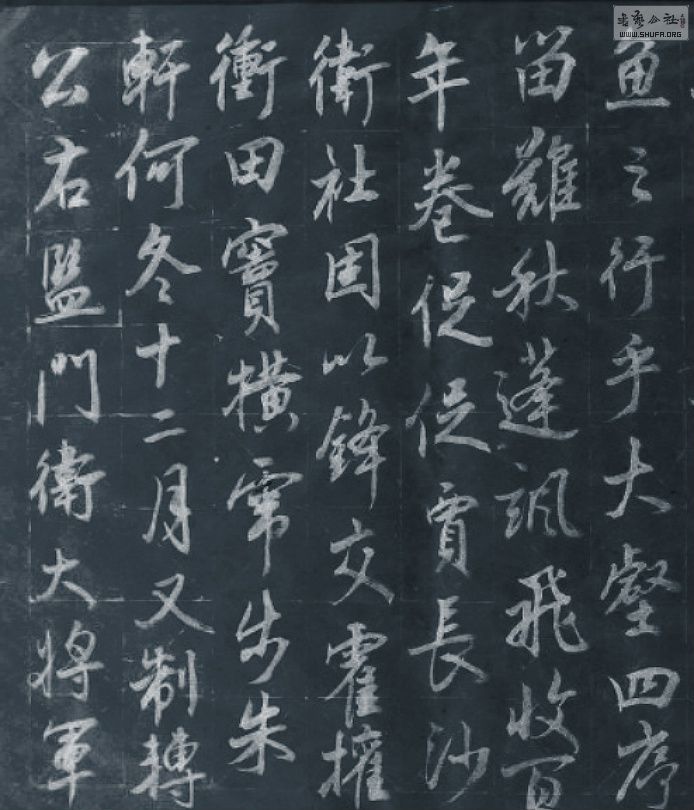 魚之行乎大壑四序
留難秋蓬颯飛收百
年卷促促賈長沙
衛社固以鋒交霍擁
衝田竇橫霈步朱
軒何冬十二月又制轉
公右監門衛大將軍
書藝公社
WWW.SHUFA.ORG